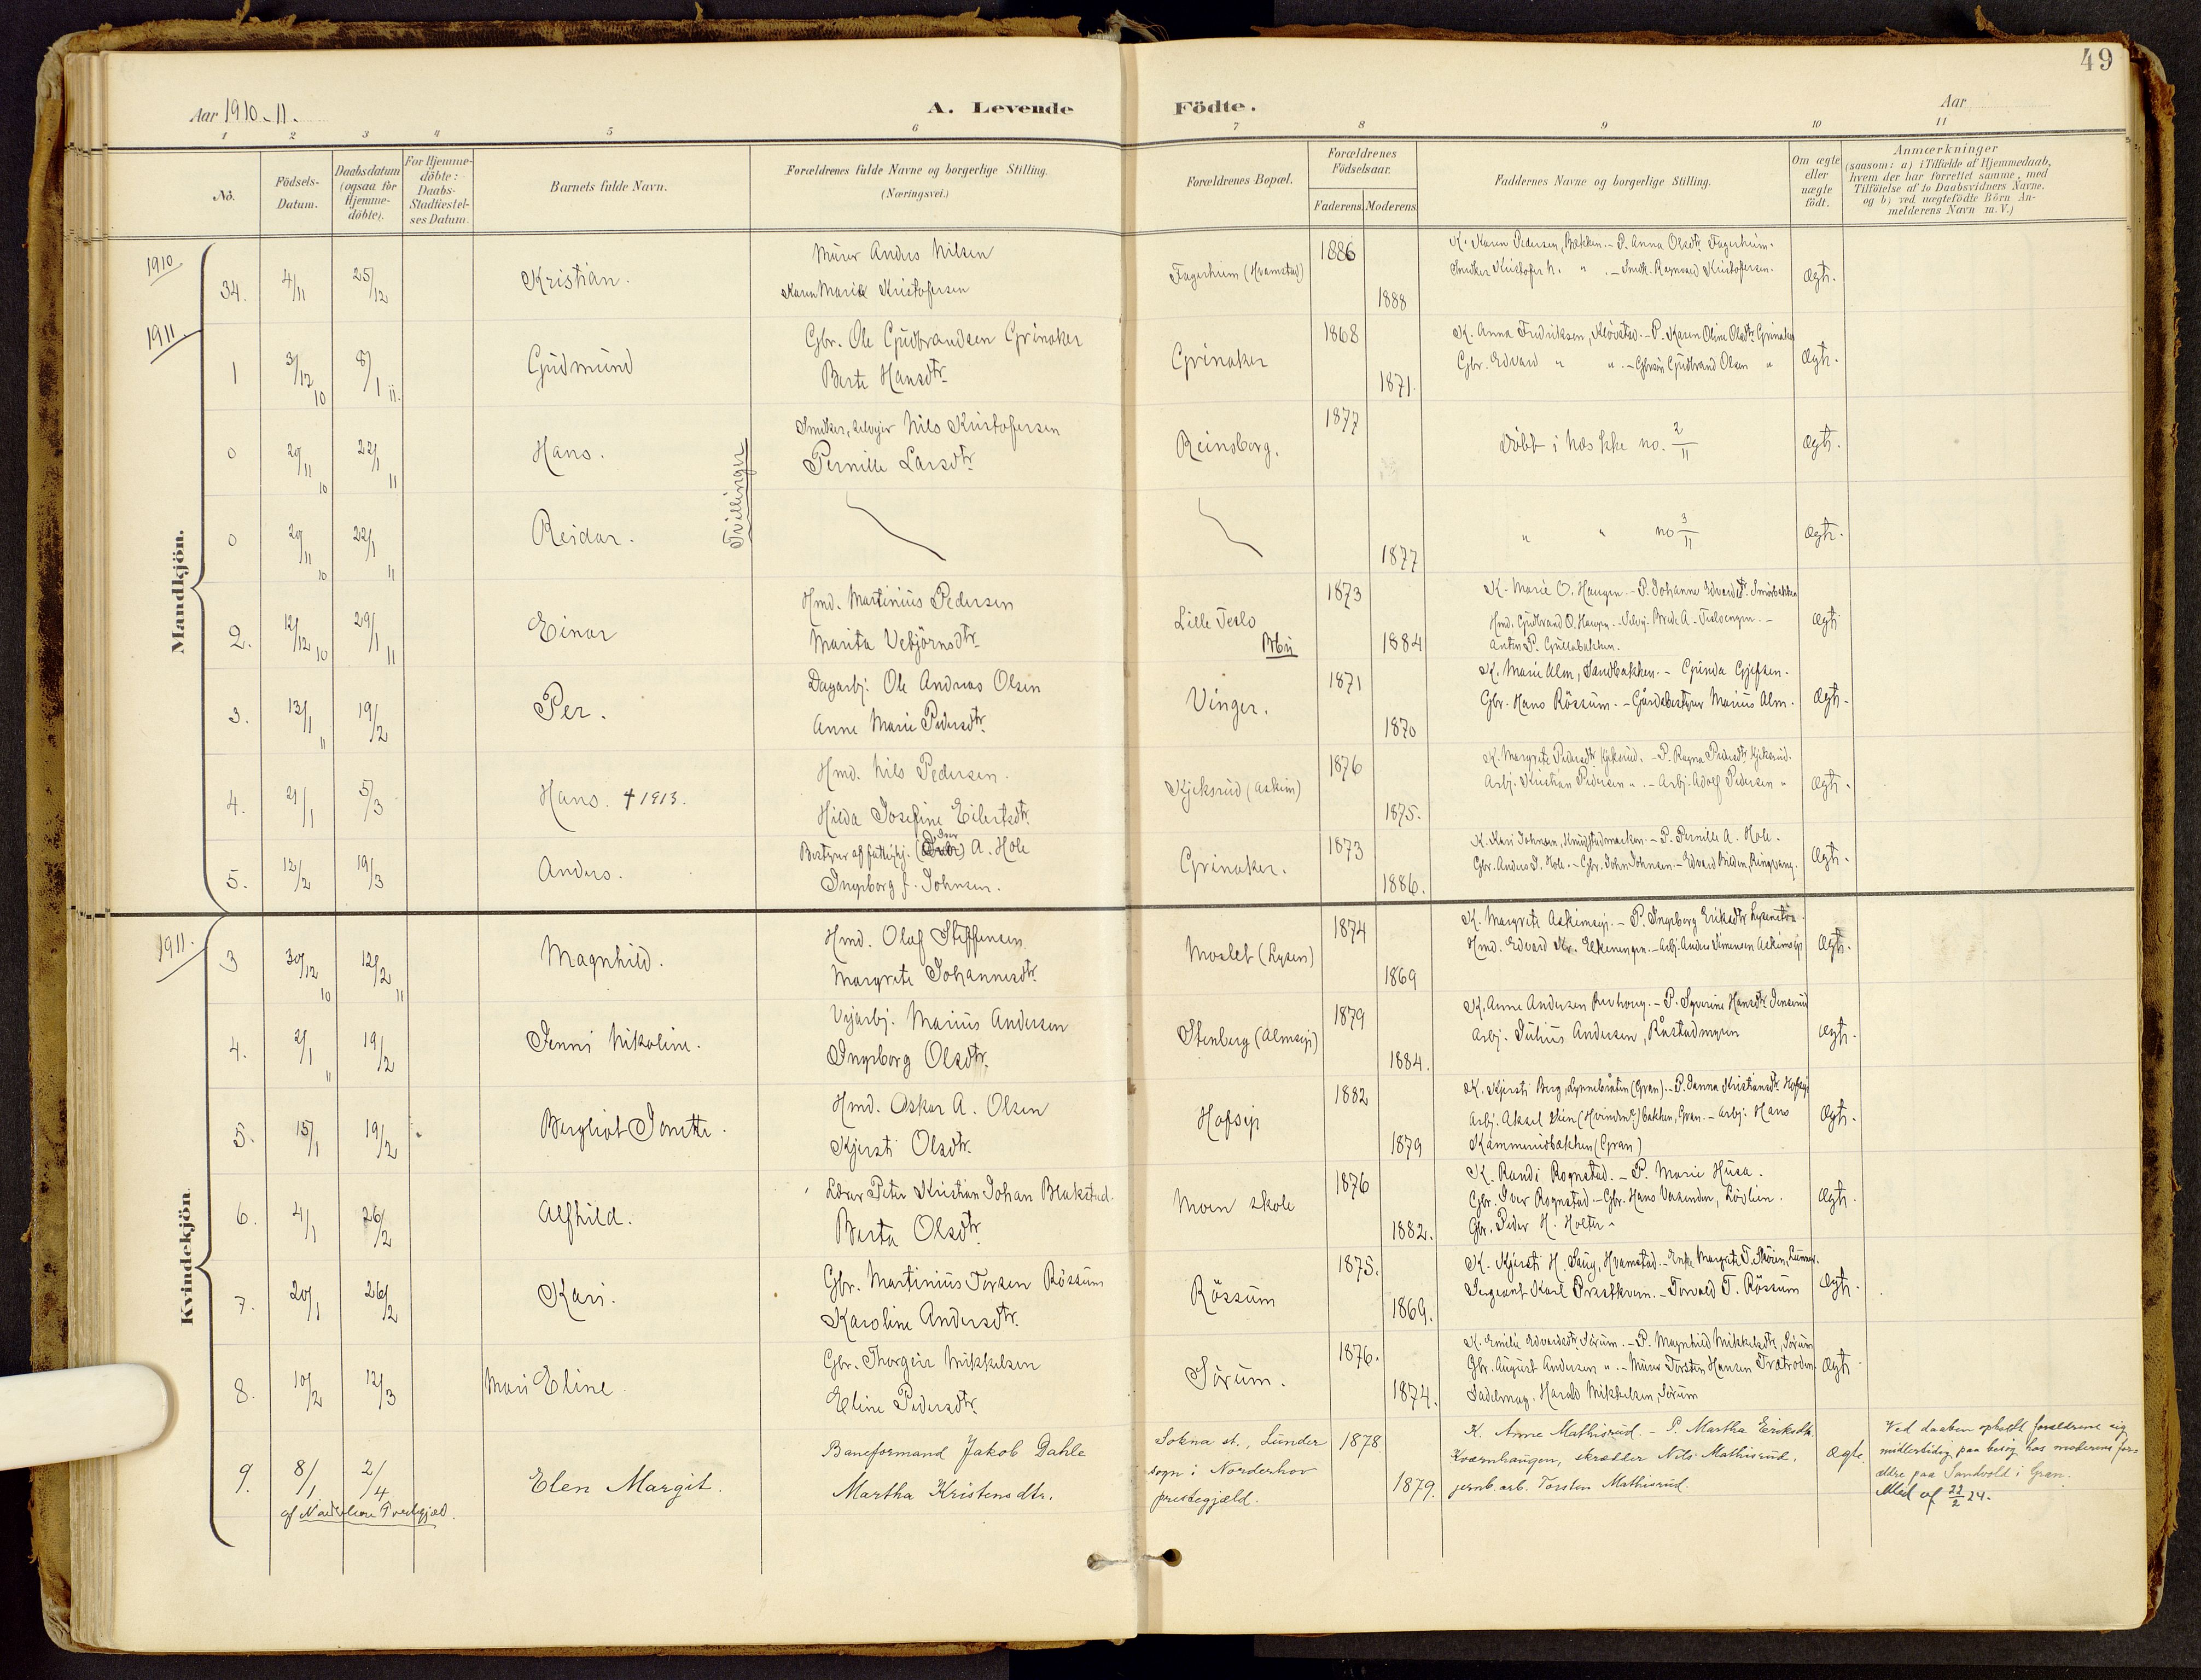 49
Aar 1910-11.
A. Levende Födte.
Aar
1 2 3 4 5 6 7 8 9 10 11
No.
Födsels-Datum.
Daabsdatum (ogsaa for Hjemme-döbte).
For Hjemme-döbte: Daabs-Stadfæstel-ses Datum.
Barnets fulde Navn.
Forældrenes fulde Navne og borgerlige Stilling. (Næringsvei.)
Forældrenes Bopæl.
Forældrenes Födselsaar.
Faderens. Moderens.
Faddernes Navne og borgerlige Stilling.
Om ægte eller uægte födt.
Anmærkninger (saasom: a) i Tilfælde af Hjemmedaab, hvem der har forrettet samme, med Tilföielse af to Daabsvidners Navne, og b) ved uægtefödte Börn An-melderens Navn m.V.)
Mandkjön.
1910
34. 4/11 25/12 Kristian.
Murer Anders Nilsen
Karen Marie Kristofersen
Fagerheim (Hvamstad) 1886 1888
K. Karen Pedersen, Bakken. - P. Anna Olsdtr. Fagerheim.
Snidker Kristofer N. " . - Snidk. Ragnvald Kristofersen.
Ægte.
1911
1 3/12 10 8/1 11. Gudmund
Gbr. Ole Gudbrandsen Grinaker
Berte Hansdtr.
Grinaker 1868 1871.
K. Anna Fredriksen, Kløvstad. - P. Karen Oline Olsdtr. Grinaker
Gbr. Edvard " " . - Gbrsön Gudbrand Olsen "
Ægte.
0 29/11 10 22/1 11 Hans.
Tvillinger
Snidker, selveier Nils Kristofersen
Pernille Larsdtr.
Reinsborg. 1877
Döbt i Næs kke no. 2/11
Ægte.
0 29/11 10 22/1 11 Reidar.
1877
" " no 3/11
Ægte.
2. 12/12 10 29/1 11 Einar
Hmd. Martinius Pedersen
Marita Vebjörnsdtr.
Lille Teslo
Bbu
1873 1884
K. Marie O. Haugen. - P. Johanne Edvardsdtr. Smörbakken
Hmd. Gudbrand O. Haugen. - A. Tesloengen. -
Anton P. Gullabakken.
Ægte
3. 13/1 11 19/2 Per.
Dagarbj. Ole Andreas Olsen
Anne Marie Pedersdtr.
Vinger. 1871 1870
K. Marie Alm, Sandbakken. - Gunda Gjefsen.
Gbr. Hans Rössum. - Gårdsbestyrer Marius Alm.
Ægte.
4. 21/1 5/3 Hans. † 1913.
Hmd. Nils Pedersen.
Hilda Josefine Eilertsdtr.
Kjeksrud (Askim) 1876 1875.
K. Margrete Pedersdtr. Kjeksrud. - P. Ragna Pedersdtr. Kjeksrud.
Arbj. Kristian Pedersen " . - Arbj. Adolf Pedersen "
Ægte.
5. 12/2 19/3 Anders.
Bestyrer af fattigkj. A. Hole
Ingeborg J. Johnsen.
Grinaker. 1873 1886.
K. Kari Johnsen, Knudstadmarken. - P. Pernille A. Hole.
Gbr. Anders J. Hole. - Gbr. John Johnsen. - Edvard Bilden, Ringvang.
Ægte.
Kvindekjön.
1911.
3 30/12 10 12/2 11 Magnhild.
Hmd. Olaf Steffensen
Margrete Johannesdtr.
Moslet (Lysen) 1874 1869
K. Margrete Askimsej. - P. Ingeborg Eriksdtr. Lysenstøa
Hmd. Edvard Kr. Ekkerengen. - Arbj. Anders Simensen Askimsejet
Ægte.
4. 2/1 11 19/2 Jenni Nikoline.
Vejarbj. Marius Andersen
Ingeborg Olsdtr.
Stenberg (Almseje) 1879 1884.
K. Anne Andersen Revhoug. - P. Syverine Hansdtr. Jensrud
Arbj. Julius Andersen, Råstadmyren
Ægte.
5. 15/1 19/2 Bergliot Jonette.
Hmd. Oskar A. Olsen
Kjersti Olsdtr.
Hofsej 1882 1879
K. Kjersti Berg, Lynnebråten (Gran). - P. Janna Kristiansdtr. Hofsej
Arbj. Aksel Sten (Hvinden)bakken, Gran. - Arbj. Hans
Kammerudbakken (Gran)
Ægte.
6. 4/1 26/2 Alfhild.
Lærer Peter Kristian Johan Blakstad.
Berta Olsdtr.
Moen skole 1876 1882.
K. Randi Rognstad. - P. Marie Husa.
Gbr. Iver Rognstad. - Gbr. Hans Vasenden, Lövlien.
Gbr. Peder H. Holter.
Ægte.
7. 20/1 26/2 Kari.
Gbr. Martinius Torsen Rössum
Karoline Andersdtr.
Rössum 1875. 1869.
K. Kjersti H. Haug, Hvamstad. - Enke Margrete T. Skøien, Lunner.
Sergeant Karl Præstkvern. - Torvald T. Rössum
Ægte.
8. 10/2 12/3 Mari Eline.
Gbr. Thorgeir Mikkelsen
Eline Pedersdtr.
Sörum. 1876. 1874.
K. Emilie Edvardsdtr. Sörum. - P. Magnhild Mikkelsdtr. Sörum
Gbr. August Andersen " . - Murer Torsten Hansen Trætroden.
Sadelmag. Harald Mikkelsen, Sörum
Ægte
9. 8/1 2/4 Elen Margit.
af Norderhov Prestegjæl.
Baneformand Jakob Dahle
Martha Kristensdtr.
Sokna st., Lunder
sogn i Norderhov
prestegjæld.
1878 1879.
K. Anne Mathisrud. - P. Martha Eriksdtr.
Kværnhaugen, skrædder Nils Mathisrud.
jernb.arb. Torsten Mathisrud.
Ægte.
Ved daaben opholdt forældrene sig
midlertidig paa besøg hos moderens for-
ældre paa Sandvold i Gran.
Med af 22/2 24.